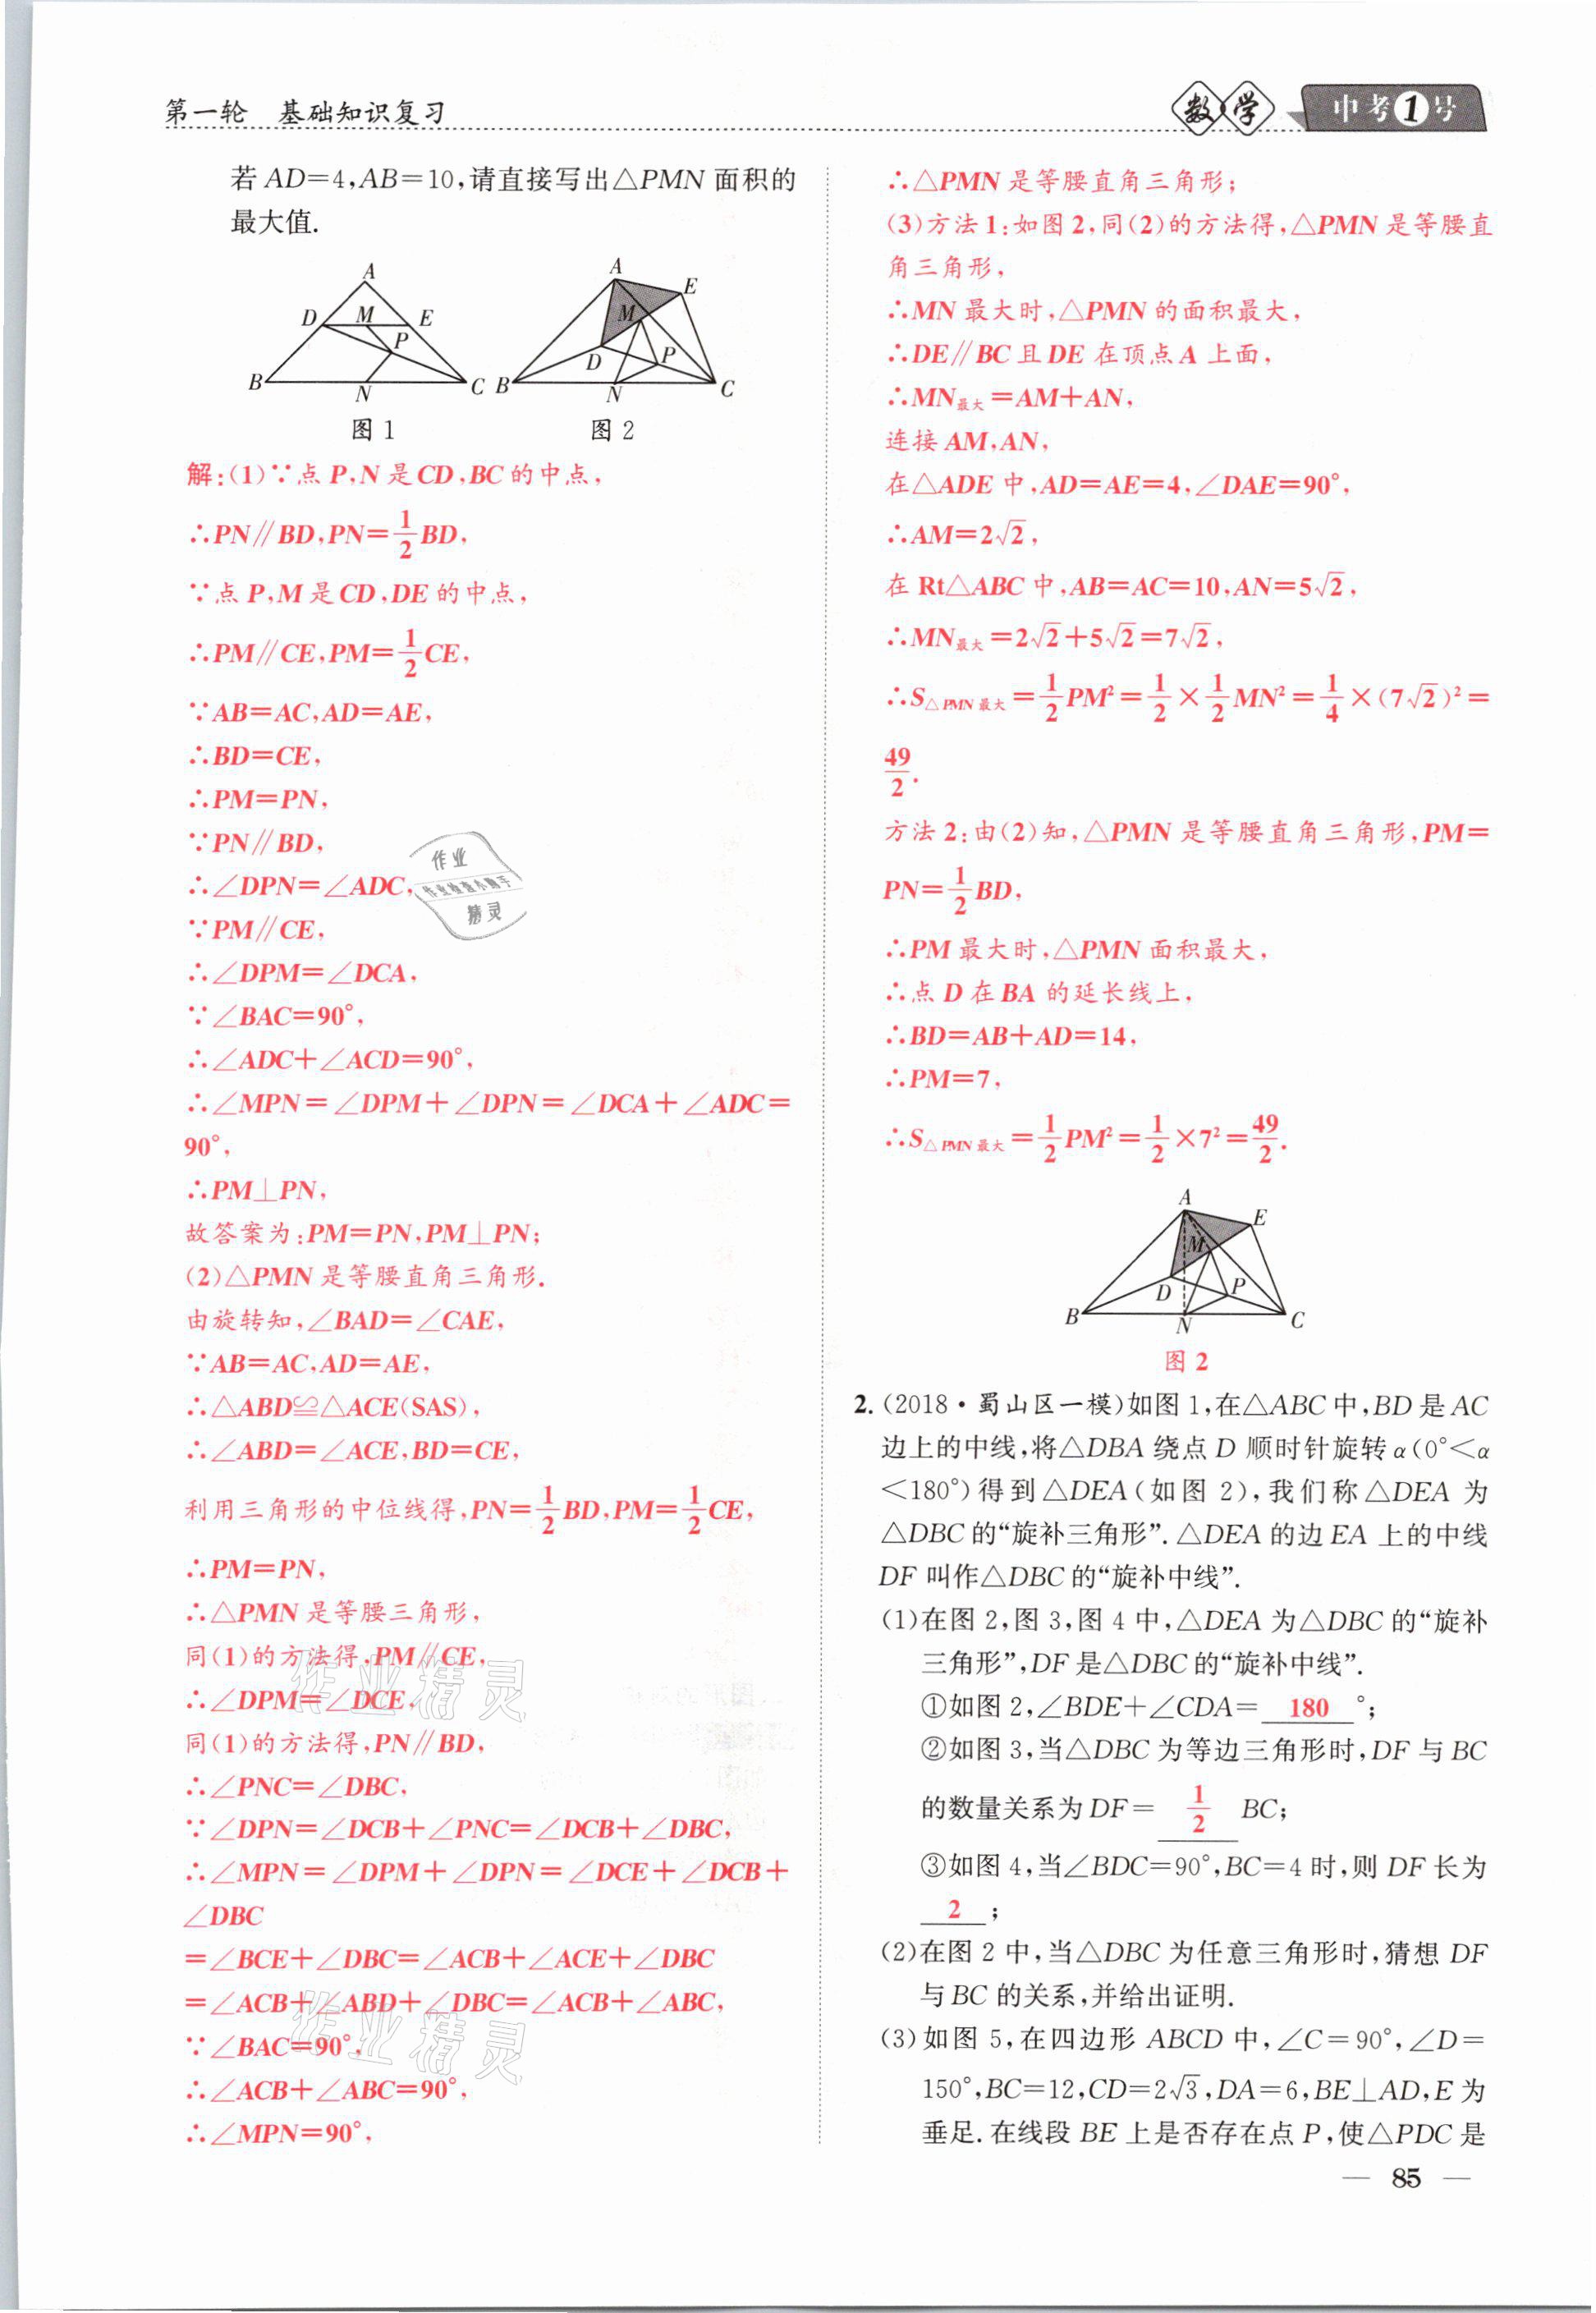 第一轮 基础知识复习
数学 中考1号
若 AD=4,AB=10,请直接写出△PMN 面积的
最大值.
A
D M E
P
B N C
图 1
A
E
M
D P
B N C
图 2
解:(1)∵点 P,N 是 CD,BC 的中点,
∴PN∥BD,PN=1/2BD,
∵点 P,M 是 CD,DE 的中点,
∴PM∥CE,PM=1/2CE,
∵AB=AC,AD=AE,
∴BD=CE,
∴PM=PN,
∵PN∥BD,
∴∠DPN=∠ADC,
∵PM∥CE,
∴∠DPM=∠DCA,
∵∠BAC=90°,
∴∠ADC+∠ACD=90°,
∴∠MPN=∠DPM+∠DPN=∠DCA+∠ADC=
90°,
∴PM⊥PN,
故答案为:PM=PN,PM⊥PN;
(2)△PMN 是等腰直角三角形.
由旋转知,∠BAD=∠CAE,
∵AB=AC,AD=AE,
∴△ABD≌△ACE(SAS),
∴∠ABD=∠ACE,BD=CE,
利用三角形的中位线得,PN=1/2BD,PM=1/2CE,
∴PM=PN,
∴△PMN 是等腰三角形,
同(1)的方法得,PM∥CE,
∴∠DPM=∠DCE,
同(1)的方法得,PN∥BD,
∴∠PNC=∠DBC,
∵∠DPN=∠DCB+∠PNC=∠DCB+∠DBC,
∴∠MPN=∠DPM+∠DPN=∠DCE+∠DCB+
∠DBC
=∠BCE+∠DBC=∠ACB+∠ACE+∠DBC
=∠ACB+∠ABD+∠DBC=∠ACB+∠ABC,
∵∠BAC=90°,
∴∠ACB+∠ABC=90°,
∴∠MPN=90°,
作业
作业检查小助手
精灵
作业精灵
作业精灵
∴△PMN 是等腰直角三角形;
(3)方法 1:如图 2,同(2)的方法得,△PMN 是等腰直
角三角形,
∴MN 最大时,△PMN 的面积最大,
∴DE∥BC 且 DE 在顶点 A 上面,
∴MN最大=AM+AN,
连接 AM,AN,
在△ADE 中,AD=AE=4,∠DAE=90°,
∴AM=2√2,
在 Rt△ABC 中,AB=AC=10,AN=5√2,
∴MN最大=2√2+5√2=7√2,
∴S△PMN最大=1/2PM²=1/2×1/2MN²=1/4×(7√2)²=
49/2.
方法 2:由(2)知,△PMN 是等腰直角三角形,PM=
PN=1/2BD,
∴PM 最大时,△PMN 面积最大,
∴点 D 在 BA 的延长线上,
∴BD=AB+AD=14,
∴PM=7,
∴S△PMN最大=1/2PM²=1/2×7²=49/2.
A
E
M
D P
B N C
图 2
2.(2018·蜀山区一模)如图 1,在△ABC 中,BD 是 AC
边上的中线,将△DBA 绕点 D 顺时针旋转 α(0°<α
<180°)得到△DEA(如图 2),我们称△DEA 为
△DBC 的“旋补三角形”.△DEA 的边 EA 上的中线
DF 叫作△DBC 的“旋补中线”.
(1)在图 2,图 3,图 4 中,△DEA 为△DBC 的“旋补
三角形”,DF 是△DBC 的“旋补中线”.
①如图 2,∠BDE+∠CDA= 180 °;
②如图 3,当△DBC 为等边三角形时,DF 与 BC
的数量关系为 DF= 1/2 BC;
③如图 4,当∠BDC=90°,BC=4 时,则 DF 长为
2 ;
(2)在图 2 中,当△DBC 为任意三角形时,猜想 DF
与 BC 的关系,并给出证明.
(3)如图 5,在四边形 ABCD 中,∠C=90°,∠D=
150°,BC=12,CD=2√3,DA=6,BE⊥AD,E 为
垂足.在线段 BE 上是否存在点 P,使△PDC 是
— 85 —